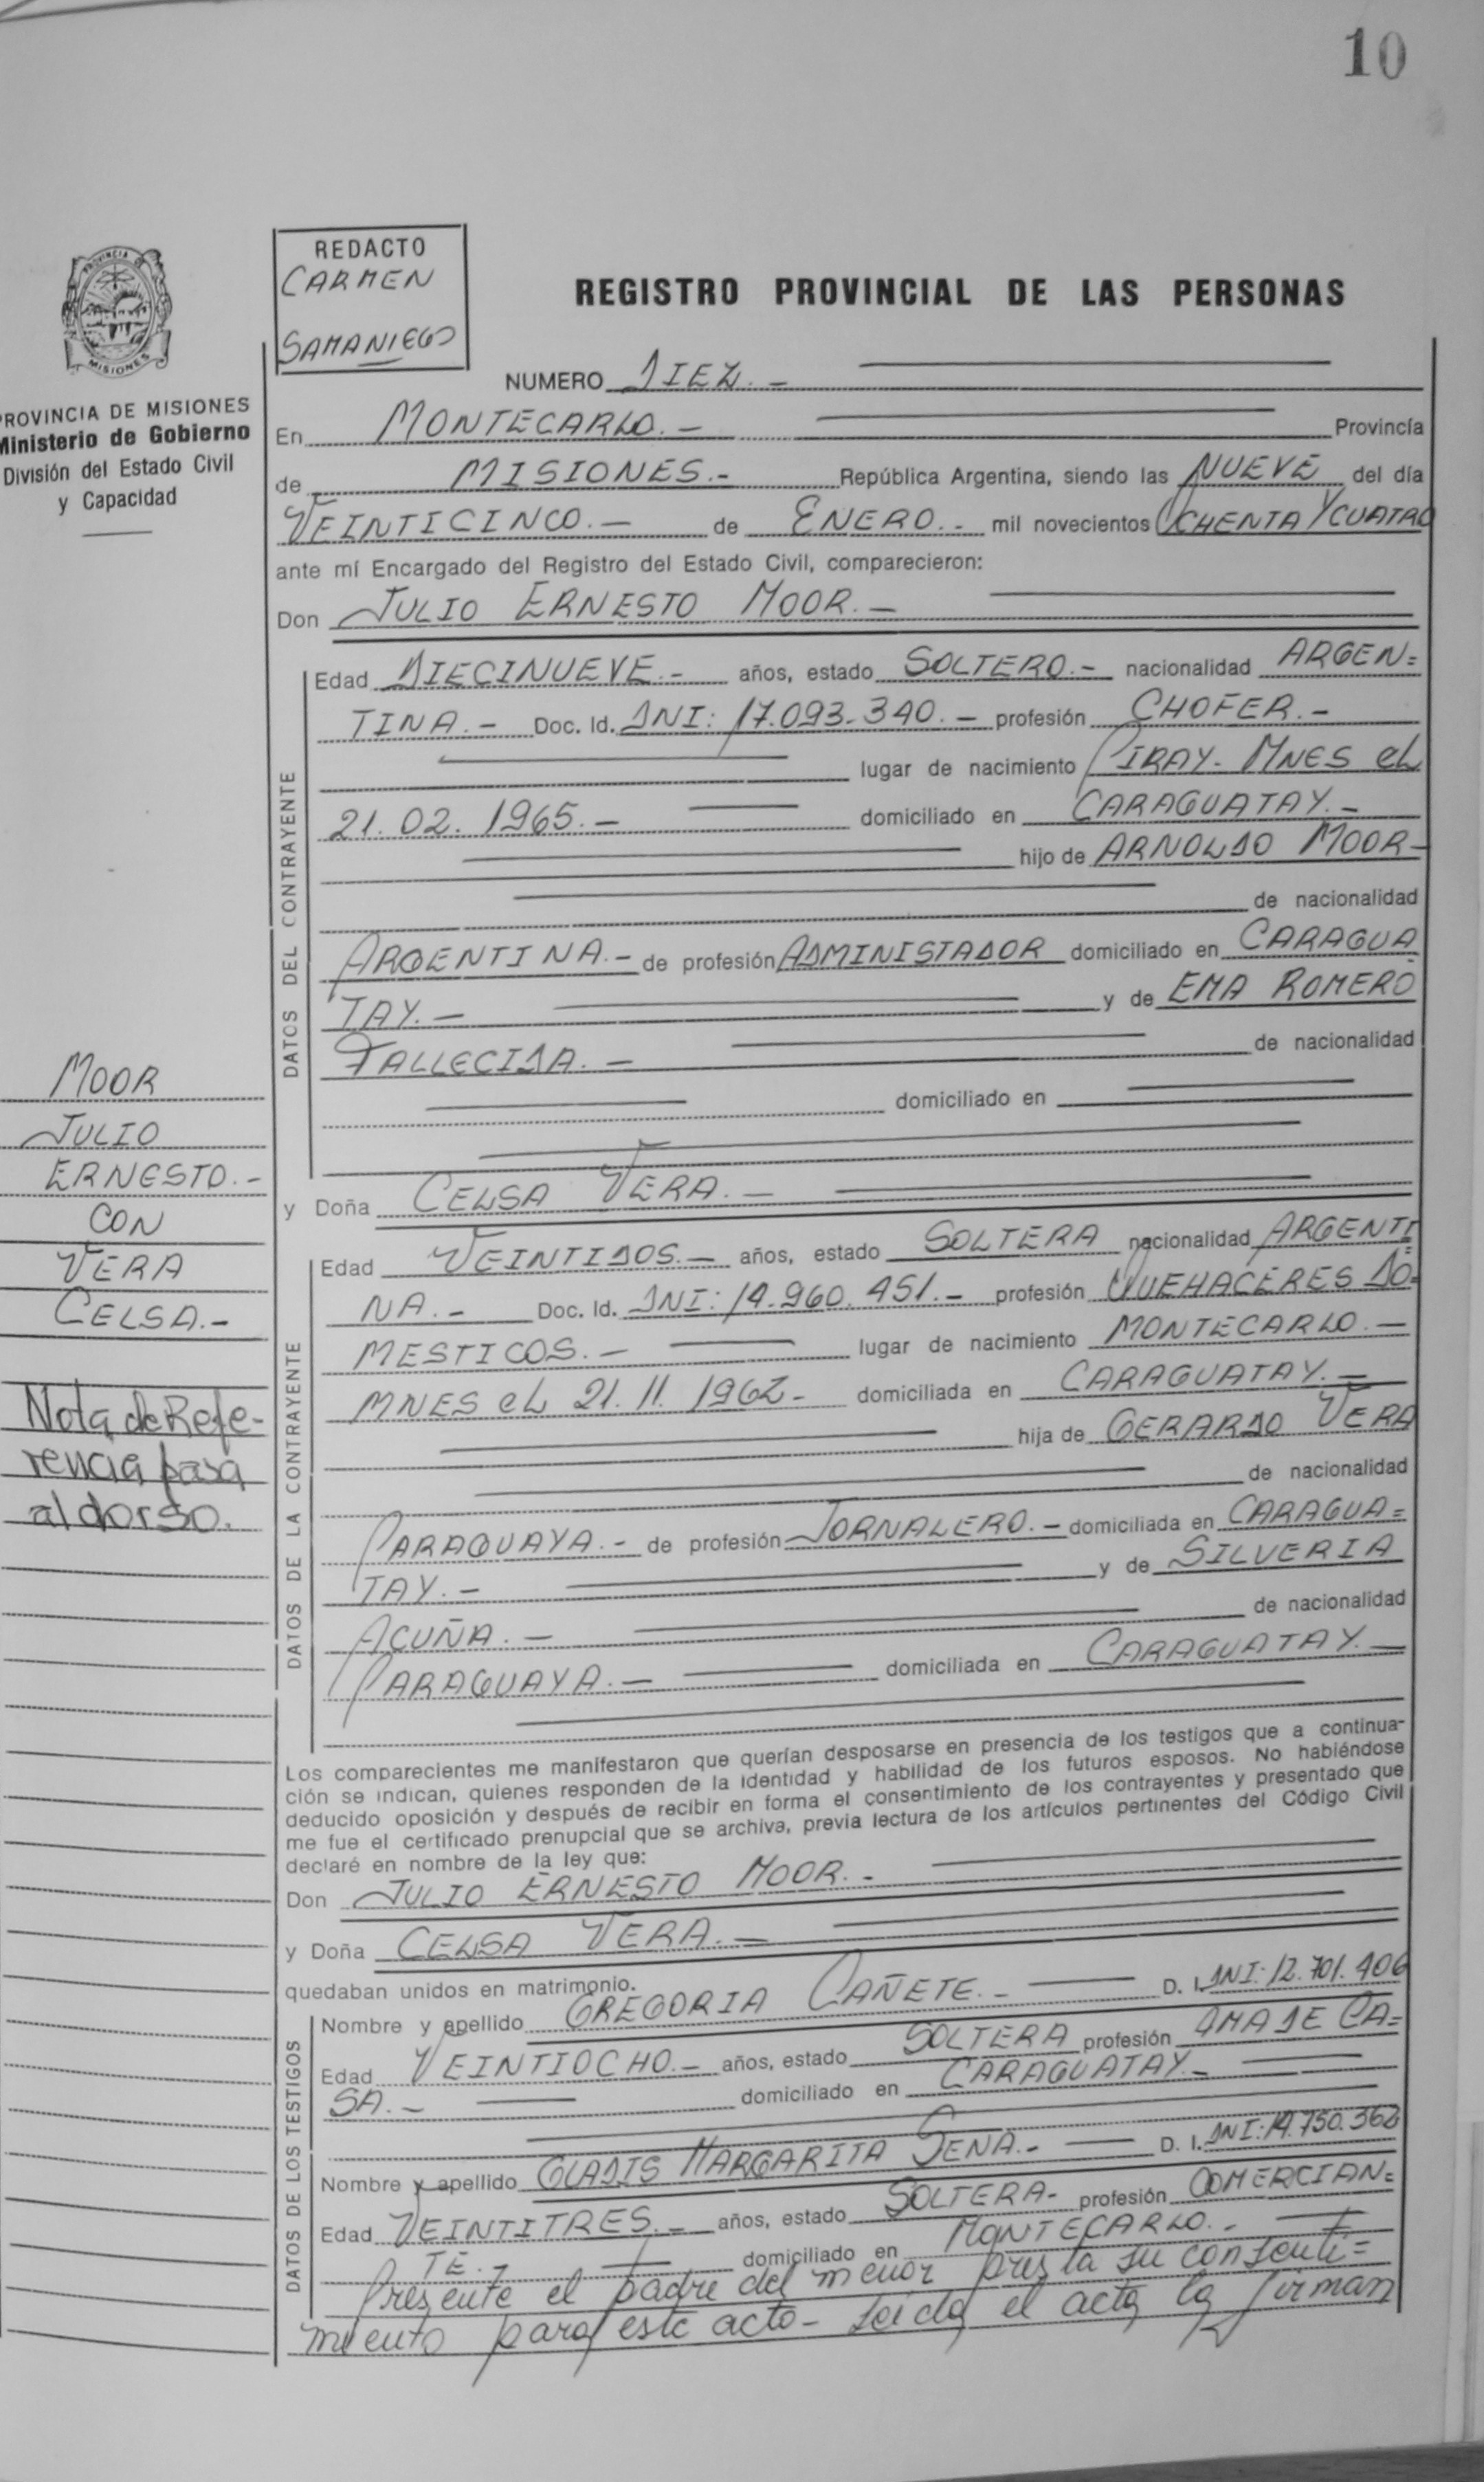 10
REDACTO
CARMEN
SAMANIEGO
REGISTRO PROVINCIAL DE LAS PERSONAS
PROVINCIA DE
MISIONES
PROVINCIA DE MISIONES
Ministerio de Gobierno
División del Estado Civil
y Capacidad
NUMERO DIEZ.-
En MONTECARLO.- Provincia
de MISIONES.- República Argentina, siendo las NUEVE del día
VEINTICINCO.- de ENERO.- mil novecientos OCHENTA Y CUATRO
ante mí Encargado del Registro del Estado Civil, comparecieron:
Don JULIO ERNESTO MOOR.-
DATOS DEL CONTRAYENTE
Edad DIECINUEVE.- años, estado SOLTERO.- nacionalidad ARGEN=
TINA.- Doc. Id. DNI: 17.093.340.- profesión CHOFER.-
lugar de nacimiento PIRAY- MNES EL
21.02.1965.- domiciliado en CARAGUATAY.-
hijo de ARNOLDO MOOR-
de nacionalidad
ARGENTINA.- de profesión ADMINISTADOR domiciliado en CARAGUA
TAY.- y de EMA ROMERO
FALLECIDA.- de nacionalidad
domiciliado en
y Doña CELSA VERA.-
DATOS DE LA CONTRAYENTE
Edad VEINTIDOS.- años, estado SOLTERA nacionalidad ARGENTI=
NA.- Doc. Id. DNI: 14.960.451.- profesión QUEHACERES DO=
MESTICOS.- lugar de nacimiento MONTECARLO.-
MNES EL 21.11.1962- domiciliada en CARAGUATAY.-
hija de GERARDO VERA
de nacionalidad
PARAGUAYA.- de profesión JORNALERO.- domiciliada en CARAGUA=
TAY.- y de SILVERIA
ACUÑA.- de nacionalidad
PARAGUAYA.- domiciliada en CARAGUATAY.-
MOOR
JULIO
ERNESTO.-
CON
VERA
CELSA.-
Nota de Refe-
rencia pasa
al dorso.
Los comparecientes me manifestaron que querían desposarse en presencia de los testigos que a continua-
ción se indican, quienes responden de la identidad y habilidad de los futuros esposos. No habiéndose
deducido oposición y después de recibir en forma el consentimiento de los contrayentes y presentado que
me fue el certificado prenupcial que se archiva, previa lectura de los artículos pertinentes del Código Civil
declaré en nombre de la ley que:
Don JULIO ERNESTO MOOR.-
y Doña CELSA VERA.-
quedaban unidos en matrimonio.
DATOS DE LOS TESTIGOS
Nombre y apellido GREGORIA CAÑETE.- D. I. DNI: 12.701.406
Edad VEINTIOCHO.- años, estado SOLTERA profesión AMA DE CA=
SA.- domiciliado en CARAGUATAY.-
Nombre y apellido GLADIS MARGARITA SENA.- D. I. DNI: 14.750.362
Edad VEINTITRES.- años, estado SOLTERA- profesión COMERCIAN=
TE.- domiciliado en MONTECARLO.-
Presente el padre del menor presta su consenti=
miento para este acto- Leida el acta la firman